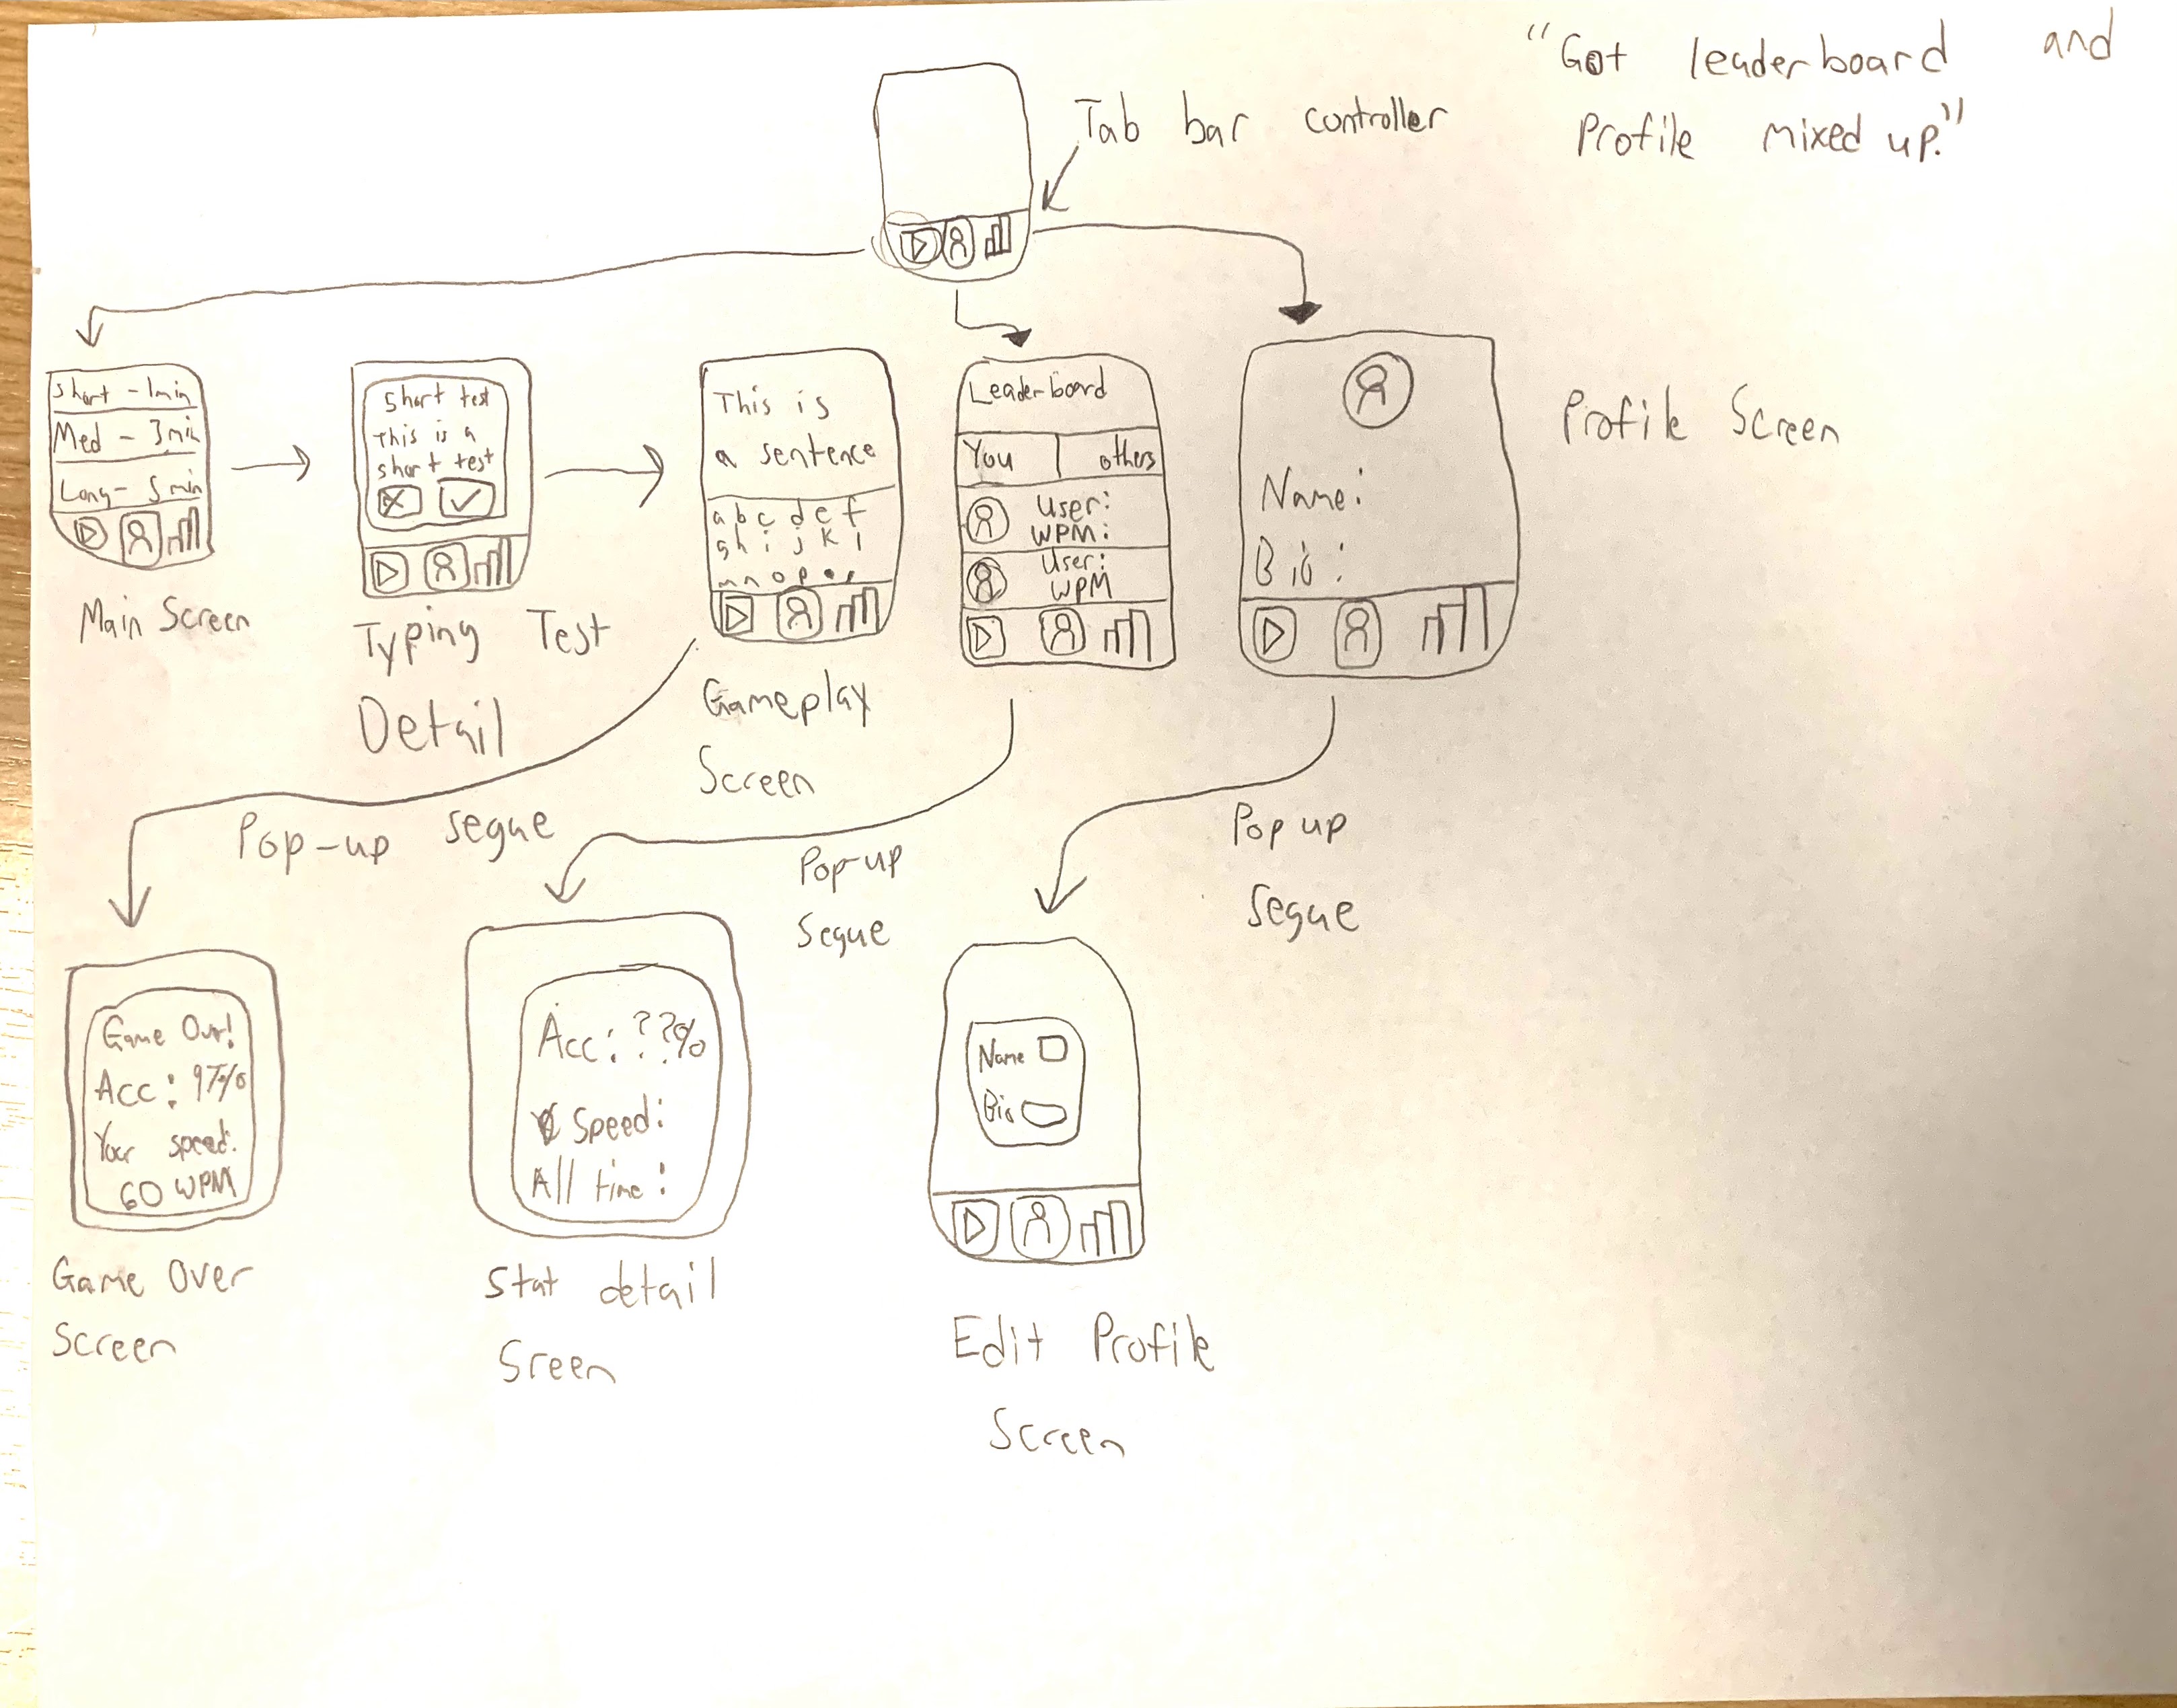 "Got leaderboard and
Profile mixed up."
Tab bar controller
Short - 1min
Med - 3min
Long - 5min
Main Screen
Short test
This is a
short test
Typing Test
Detail
This is
a sentence
a b c d e f
g h i j k l
m n o p
Gameplay
Screen
Leaderboard
You others
User:
WPM:
User:
WPM
Name:
Bio:
Profile Screen
Pop-up segue
Pop-up
Segue
Pop up
Segue
Game Over!
Acc: 97%
Your speed:
60 WPM
Game Over
Screen
Acc: ??%
Speed:
All time:
Stat detail
Sreen
Name
Bio
Edit Profile
Screen